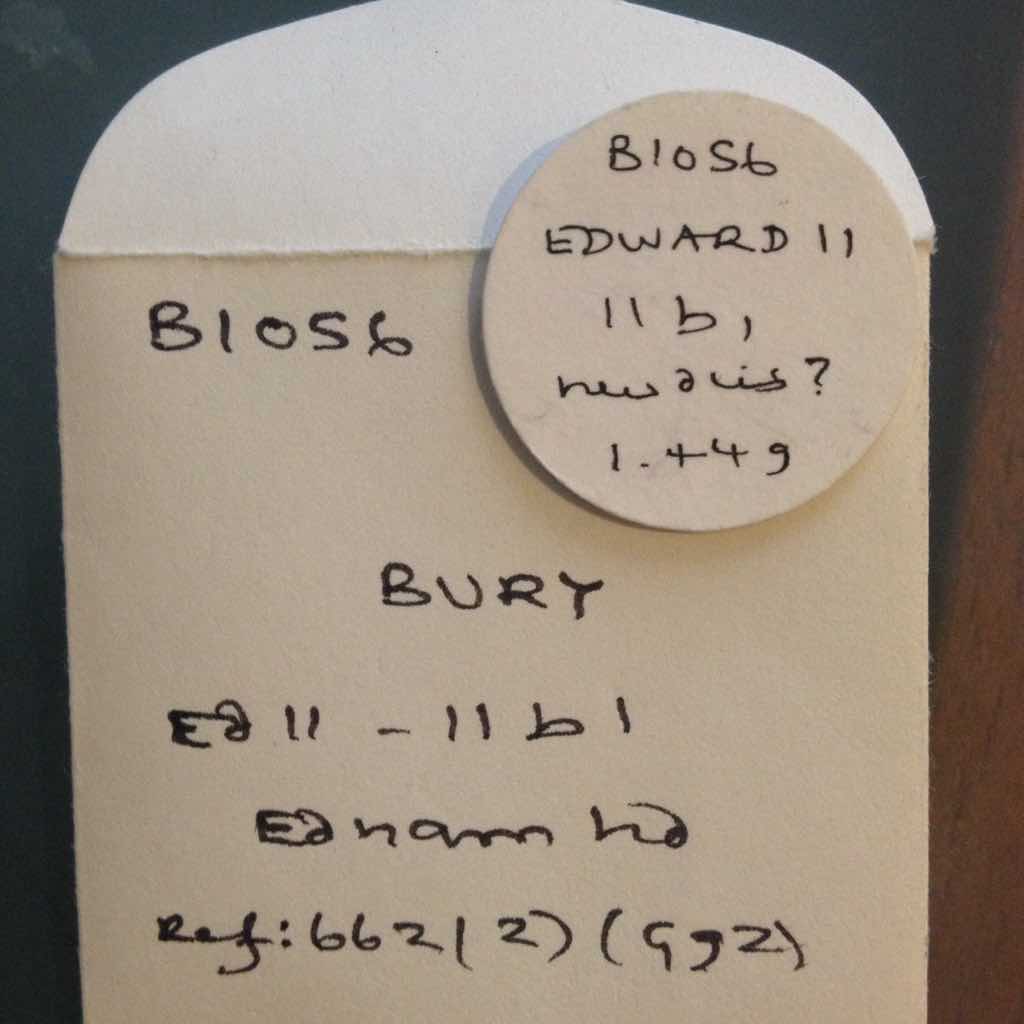 B1056
EDWARD 11
11 b 1
new dies?
1.44g
B1056
BURY
Ed 11 - 11 b 1
Ednam hd
Ref: 662 (2) (992)